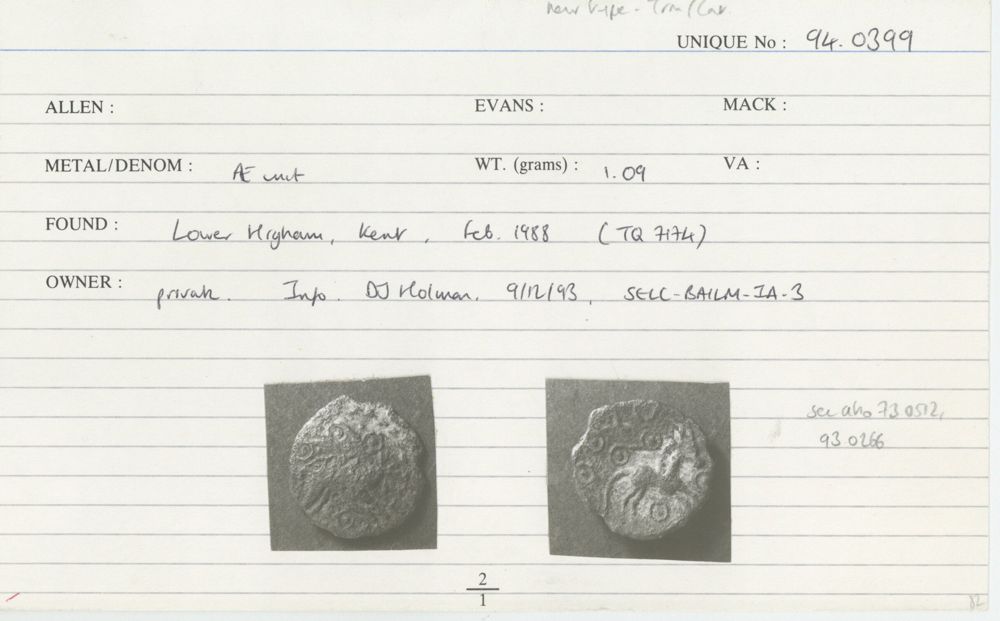 new type -
UNIQUE No : 94.0399
ALLEN : EVANS : MACK :
METAL/DENOM : Æ unit WT. (grams) : 1.09 VA :
FOUND : Lower Higham, Kent, Feb. 1988 (TQ 7174)
OWNER : private. Info. DJ Holman, 9/12/93, SELC-BAILM-IA-3
see also 73.0512,
93 0266
2
1